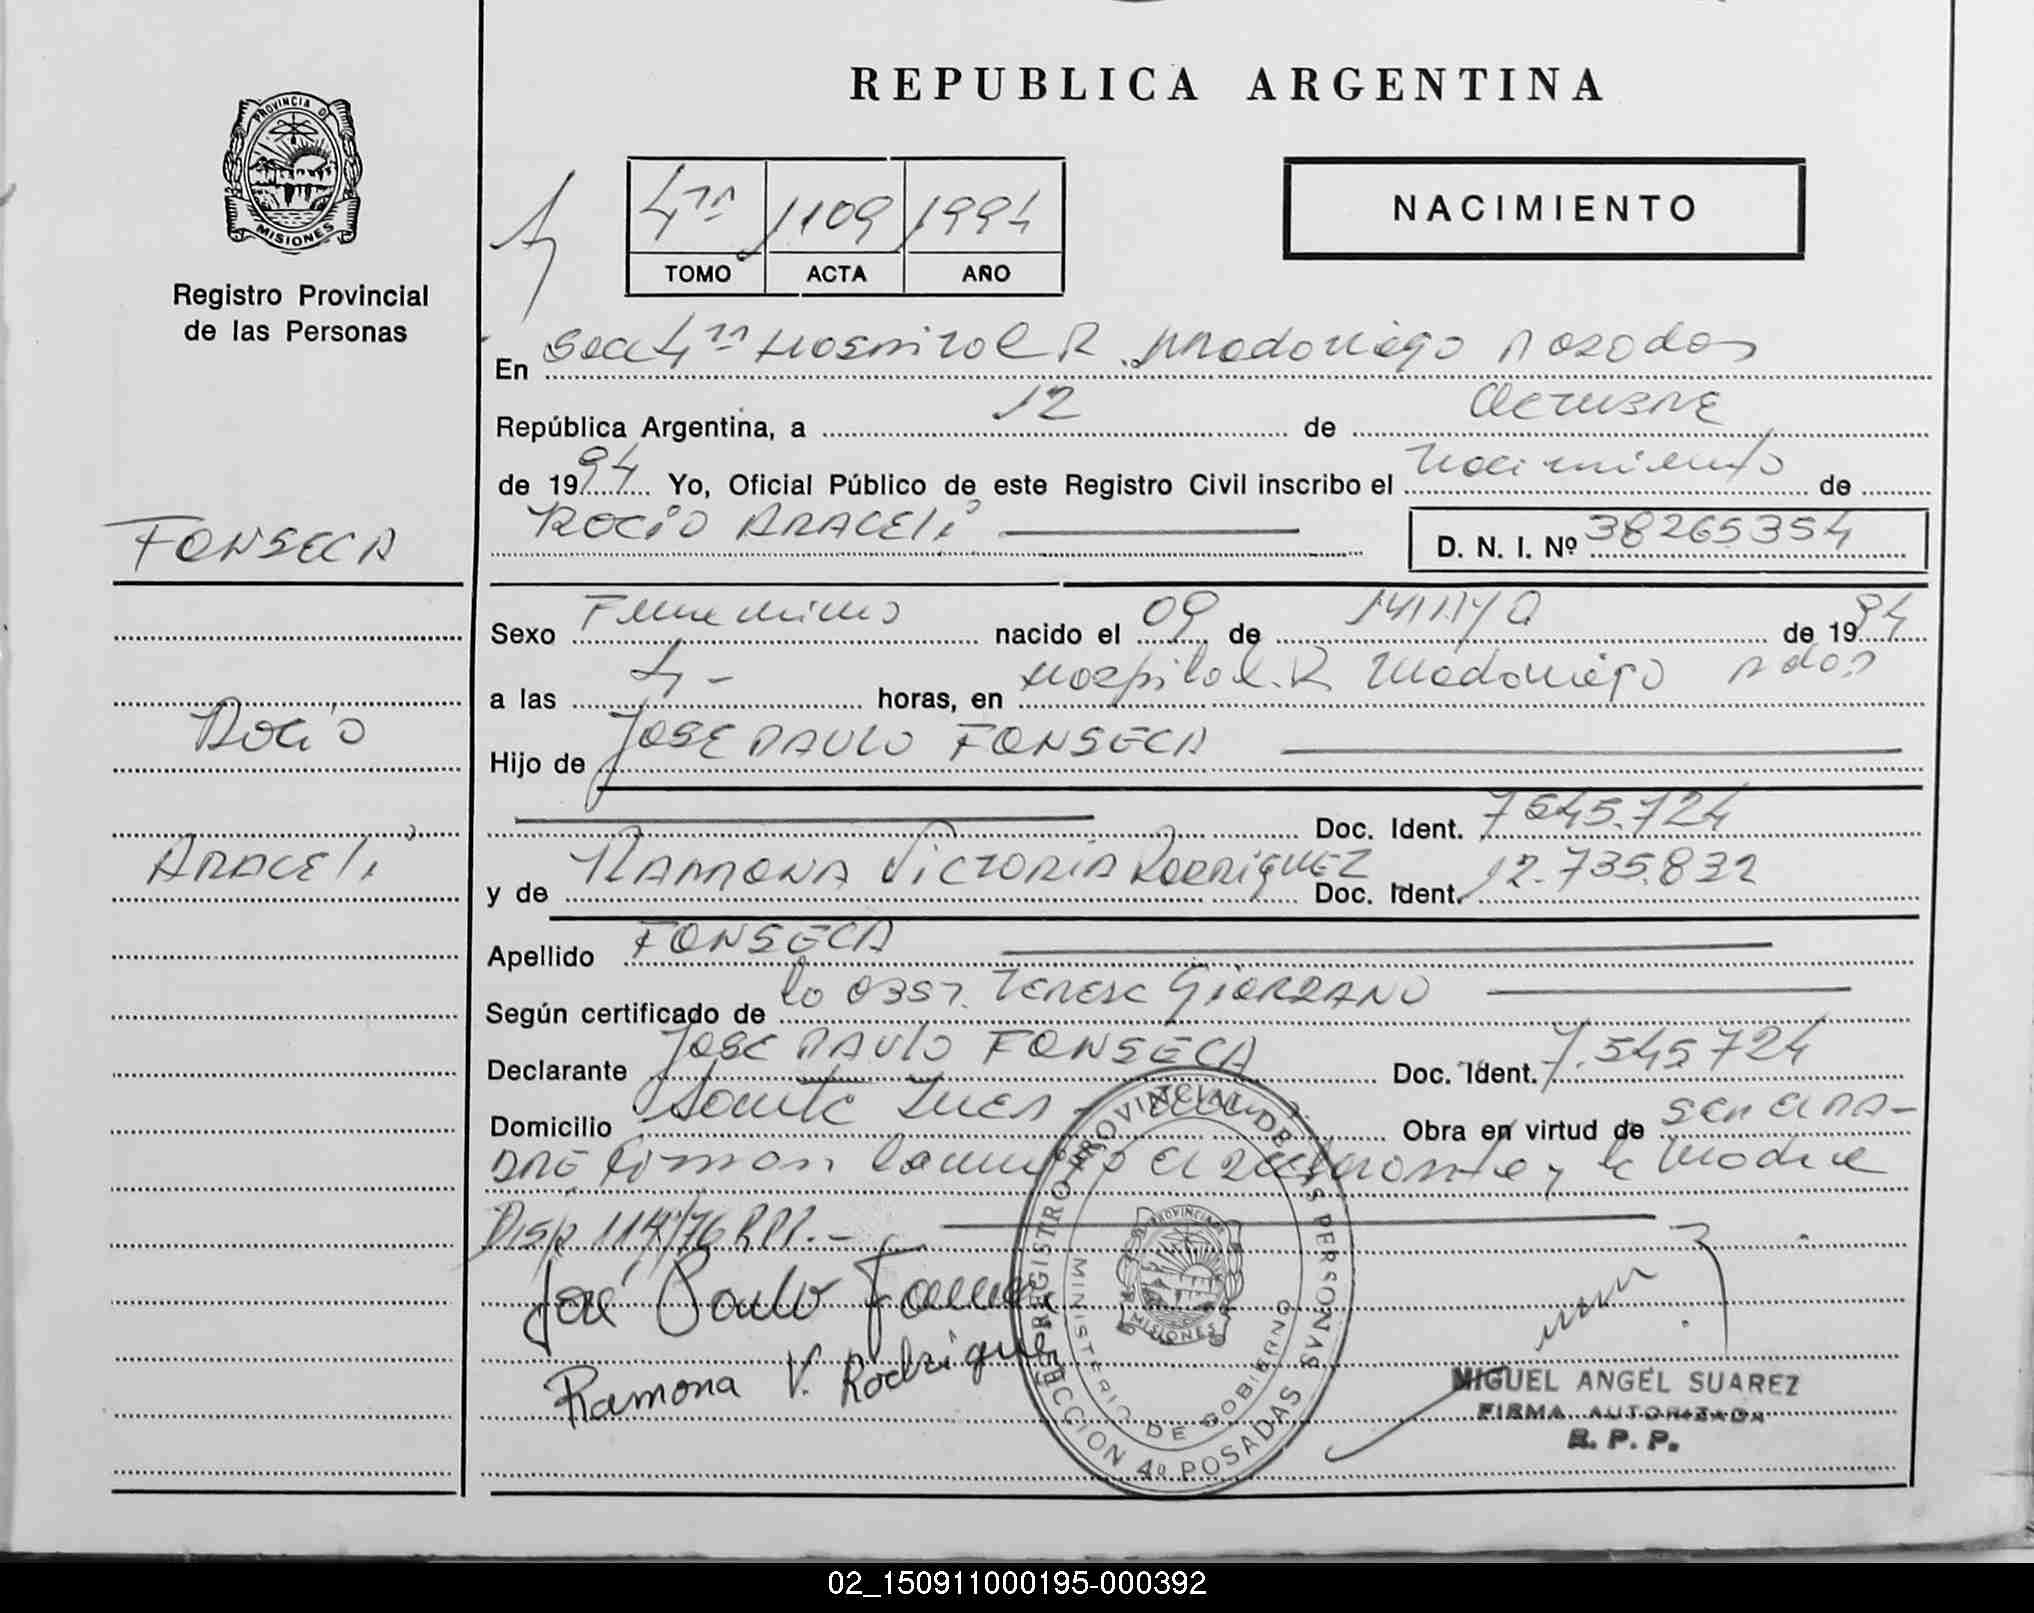 REPUBLICA ARGENTINA
PROVINCIA D
MISIONES
Registro Provincial
de las Personas
4ta 1109 1994
TOMO ACTA AÑO
NACIMIENTO
En Secc 4ta Hospital R. Madariaga Posadas
República Argentina, a 12 de Octubre
de 1994 Yo, Oficial Público de este Registro Civil inscribo el Nacimiento de
Rocio Araceli
D. N. I. Nº 38265354
FONSECA
Rocio
Araceli
Sexo Femenino nacido el 09 de MAYO de 1994
a las 4 - horas, en Hospital R Madariaga Pdas
Hijo de JOSE PAULO FONSECA
Doc. Ident. 7545.724
y de RAMONA VICTORIA RODRIGUEZ Doc. Ident. 12.735.832
Apellido FONSECA
Según certificado de la Obst. Terese GIORDANO
Declarante JOSE PAULO FONSECA Doc. Ident. 7.545724
Domicilio Santa Ines - Obra en virtud de ser el PA-
DRE Firman el declarante y la Madre
Disp 114/76 RPP. -
José Paulo Fonseca
Ramona V. Rodriguez
REGISTRO PROVINCIAL DE LAS PERSONAS
MINISTERIO DE GOBIERNO
PROVINCIA D
MISIONES
SECCION 4º POSADAS
MIGUEL ANGEL SUAREZ
FIRMA AUTORIZADA
R. P. P.
02_150911000195-000392